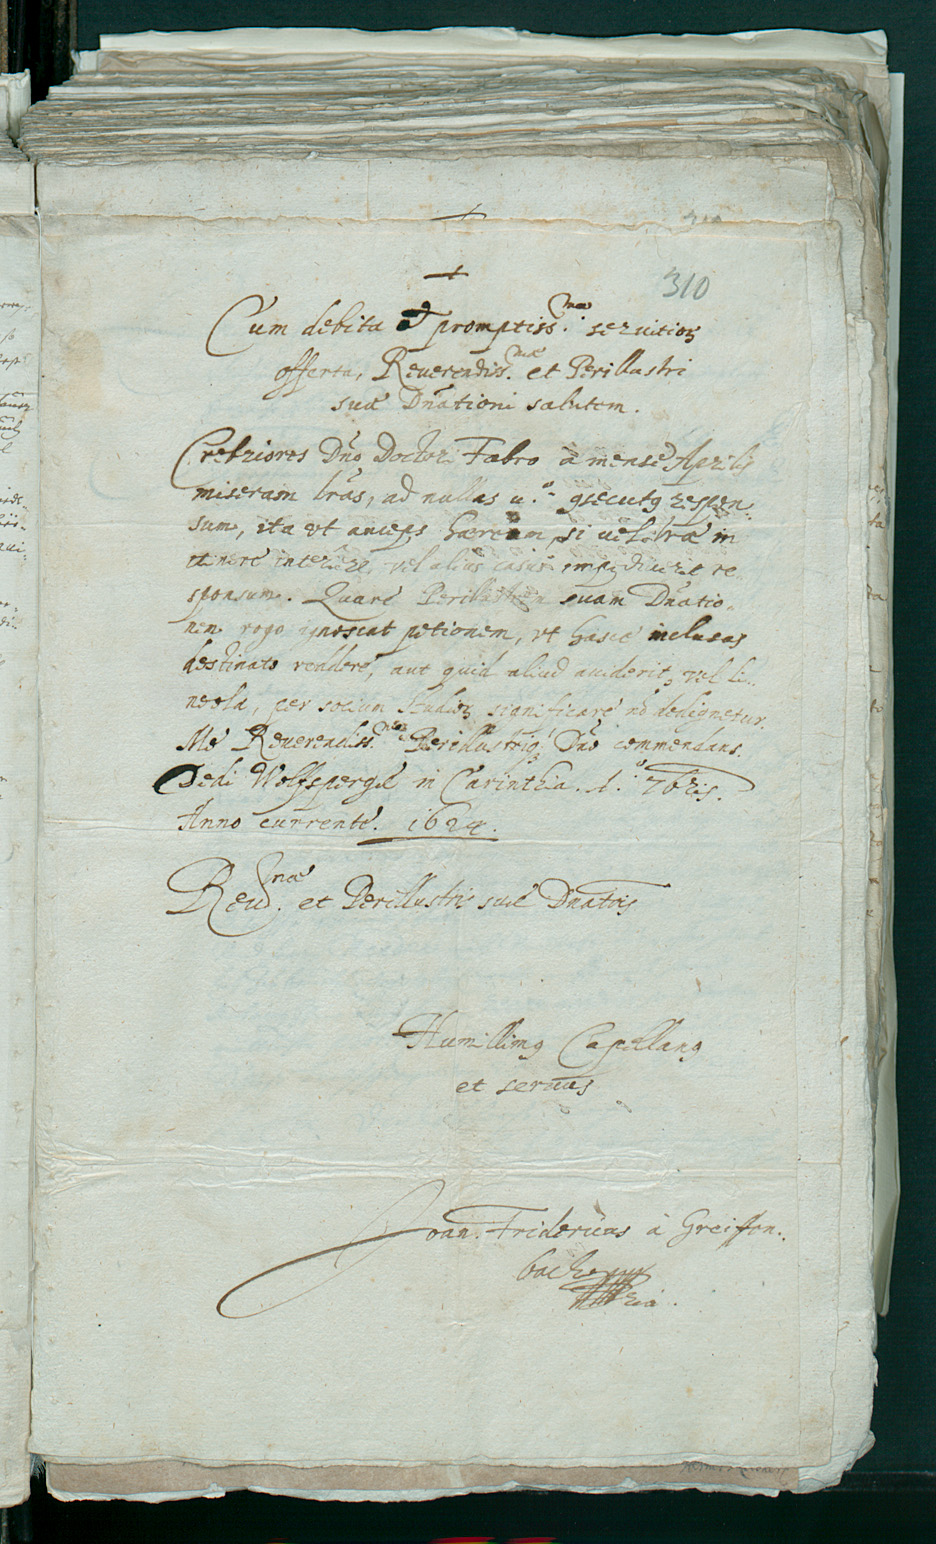 310
Cum debita et promptiss.ma servitior
offerta, Reverendiss.mae et Perillustri
suae Dnationi salutem.
Crebriores Dno Doctori Fabro à mense Aprilis
miseram lras, ad nullas u.o gsecutg respon¬
sum, ita vt anceps haeream, si vel lrae in
itinere vel alius casus impediverit re¬
sponsum. Quare Perillustrem suam Dnatio¬
nem rogo ignoscat petionem, vt hasce inclusas
destinato reddere, aut quid aliud acciderit, vel li¬
neola, per socium significare nō dedignetur.
Me Reverendiss.mae Perillustrig Dno commendans.
Dedi Wolfspergae in Carinthia. 1.o 7bris.
Anno currente. 1624.
Reud.mae et Perillustris suae Dnatōis
Humillimg Capellang
et servus
Joan. Fridericus à Greiffen¬